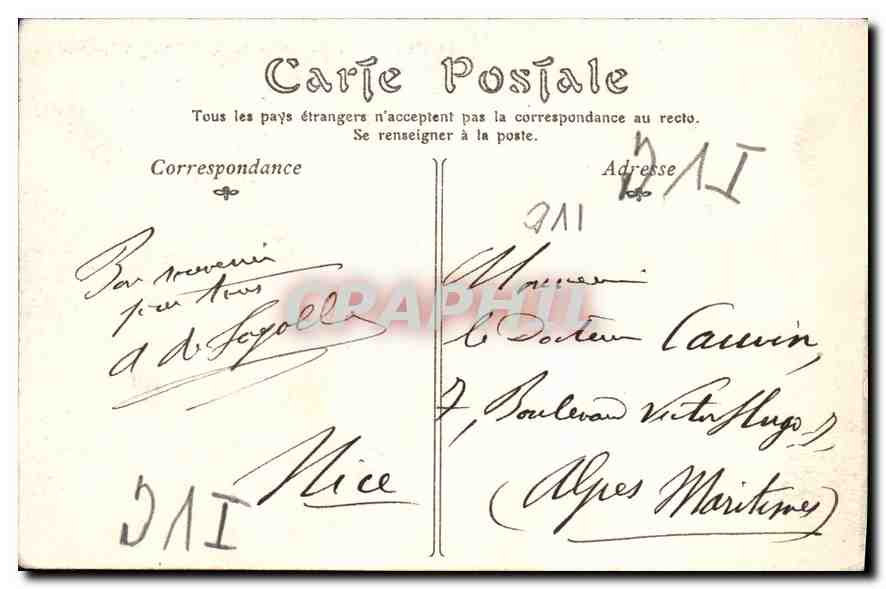 Carte Postale
Tous les pays étrangers n'acceptent pas la correspondance au recto.
Se renseigner à la poste.
Correspondance
Adresse
D1I
D11
Bon souvenir
pour tous
A de
Monsieur
le Docteur Cauvin,
7, Boulevard Victor Hugo, 7,
Nice
(Alpes Maritimes)
D1I
CPAPHIL